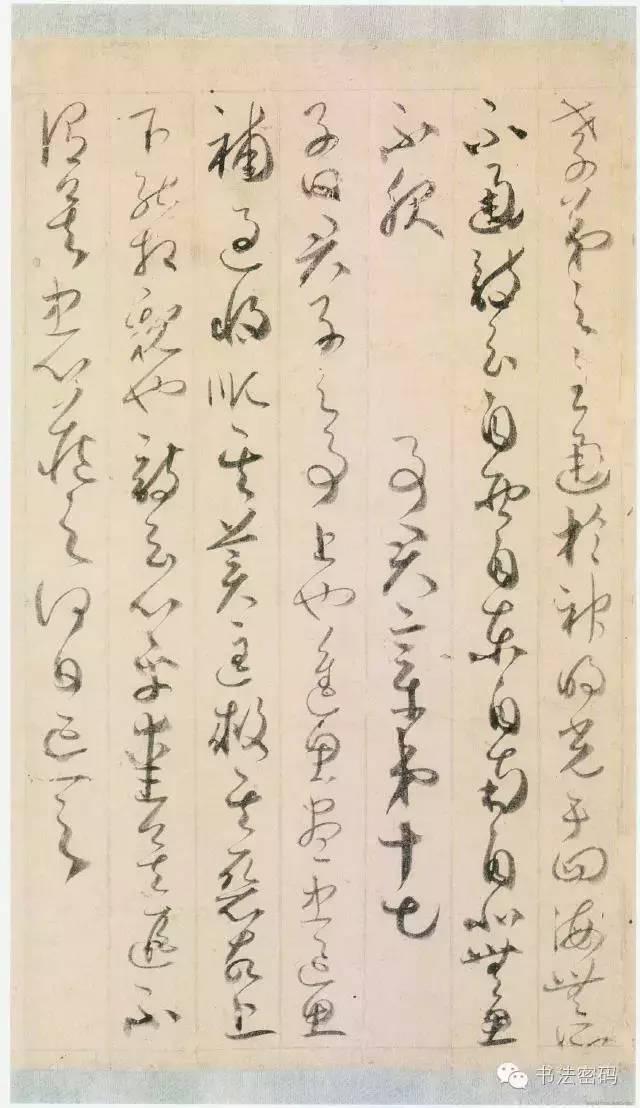 孝悌之至通於神明光于四海無所
不通詩云自西自東自南自北無思
不服　事君章第十七
子曰君子之事上也進思盡忠退思
補過將順其美匡救其惡故上
下能相親也詩云心乎愛矣遐不
謂矣忠心藏之何日忘之
书法密码